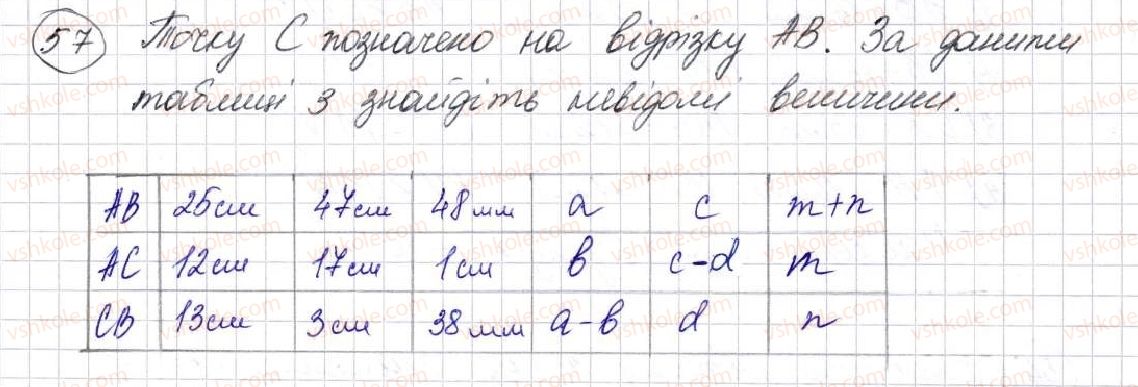 57 Точку С позначено на відрізку АВ. За даними
таблиці 3 знайдіть невідомі величини.
АВ 25см 47см 48мм a c m+n
АС 12см 17см 1см b c-d m
СВ 13см 3см 38мм a-b d n